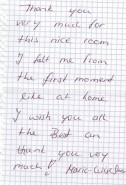 Thank you
very much for
this nice room
I felt me from
the first moment
like at home
I wish you all
the Best an
thank you very
much!